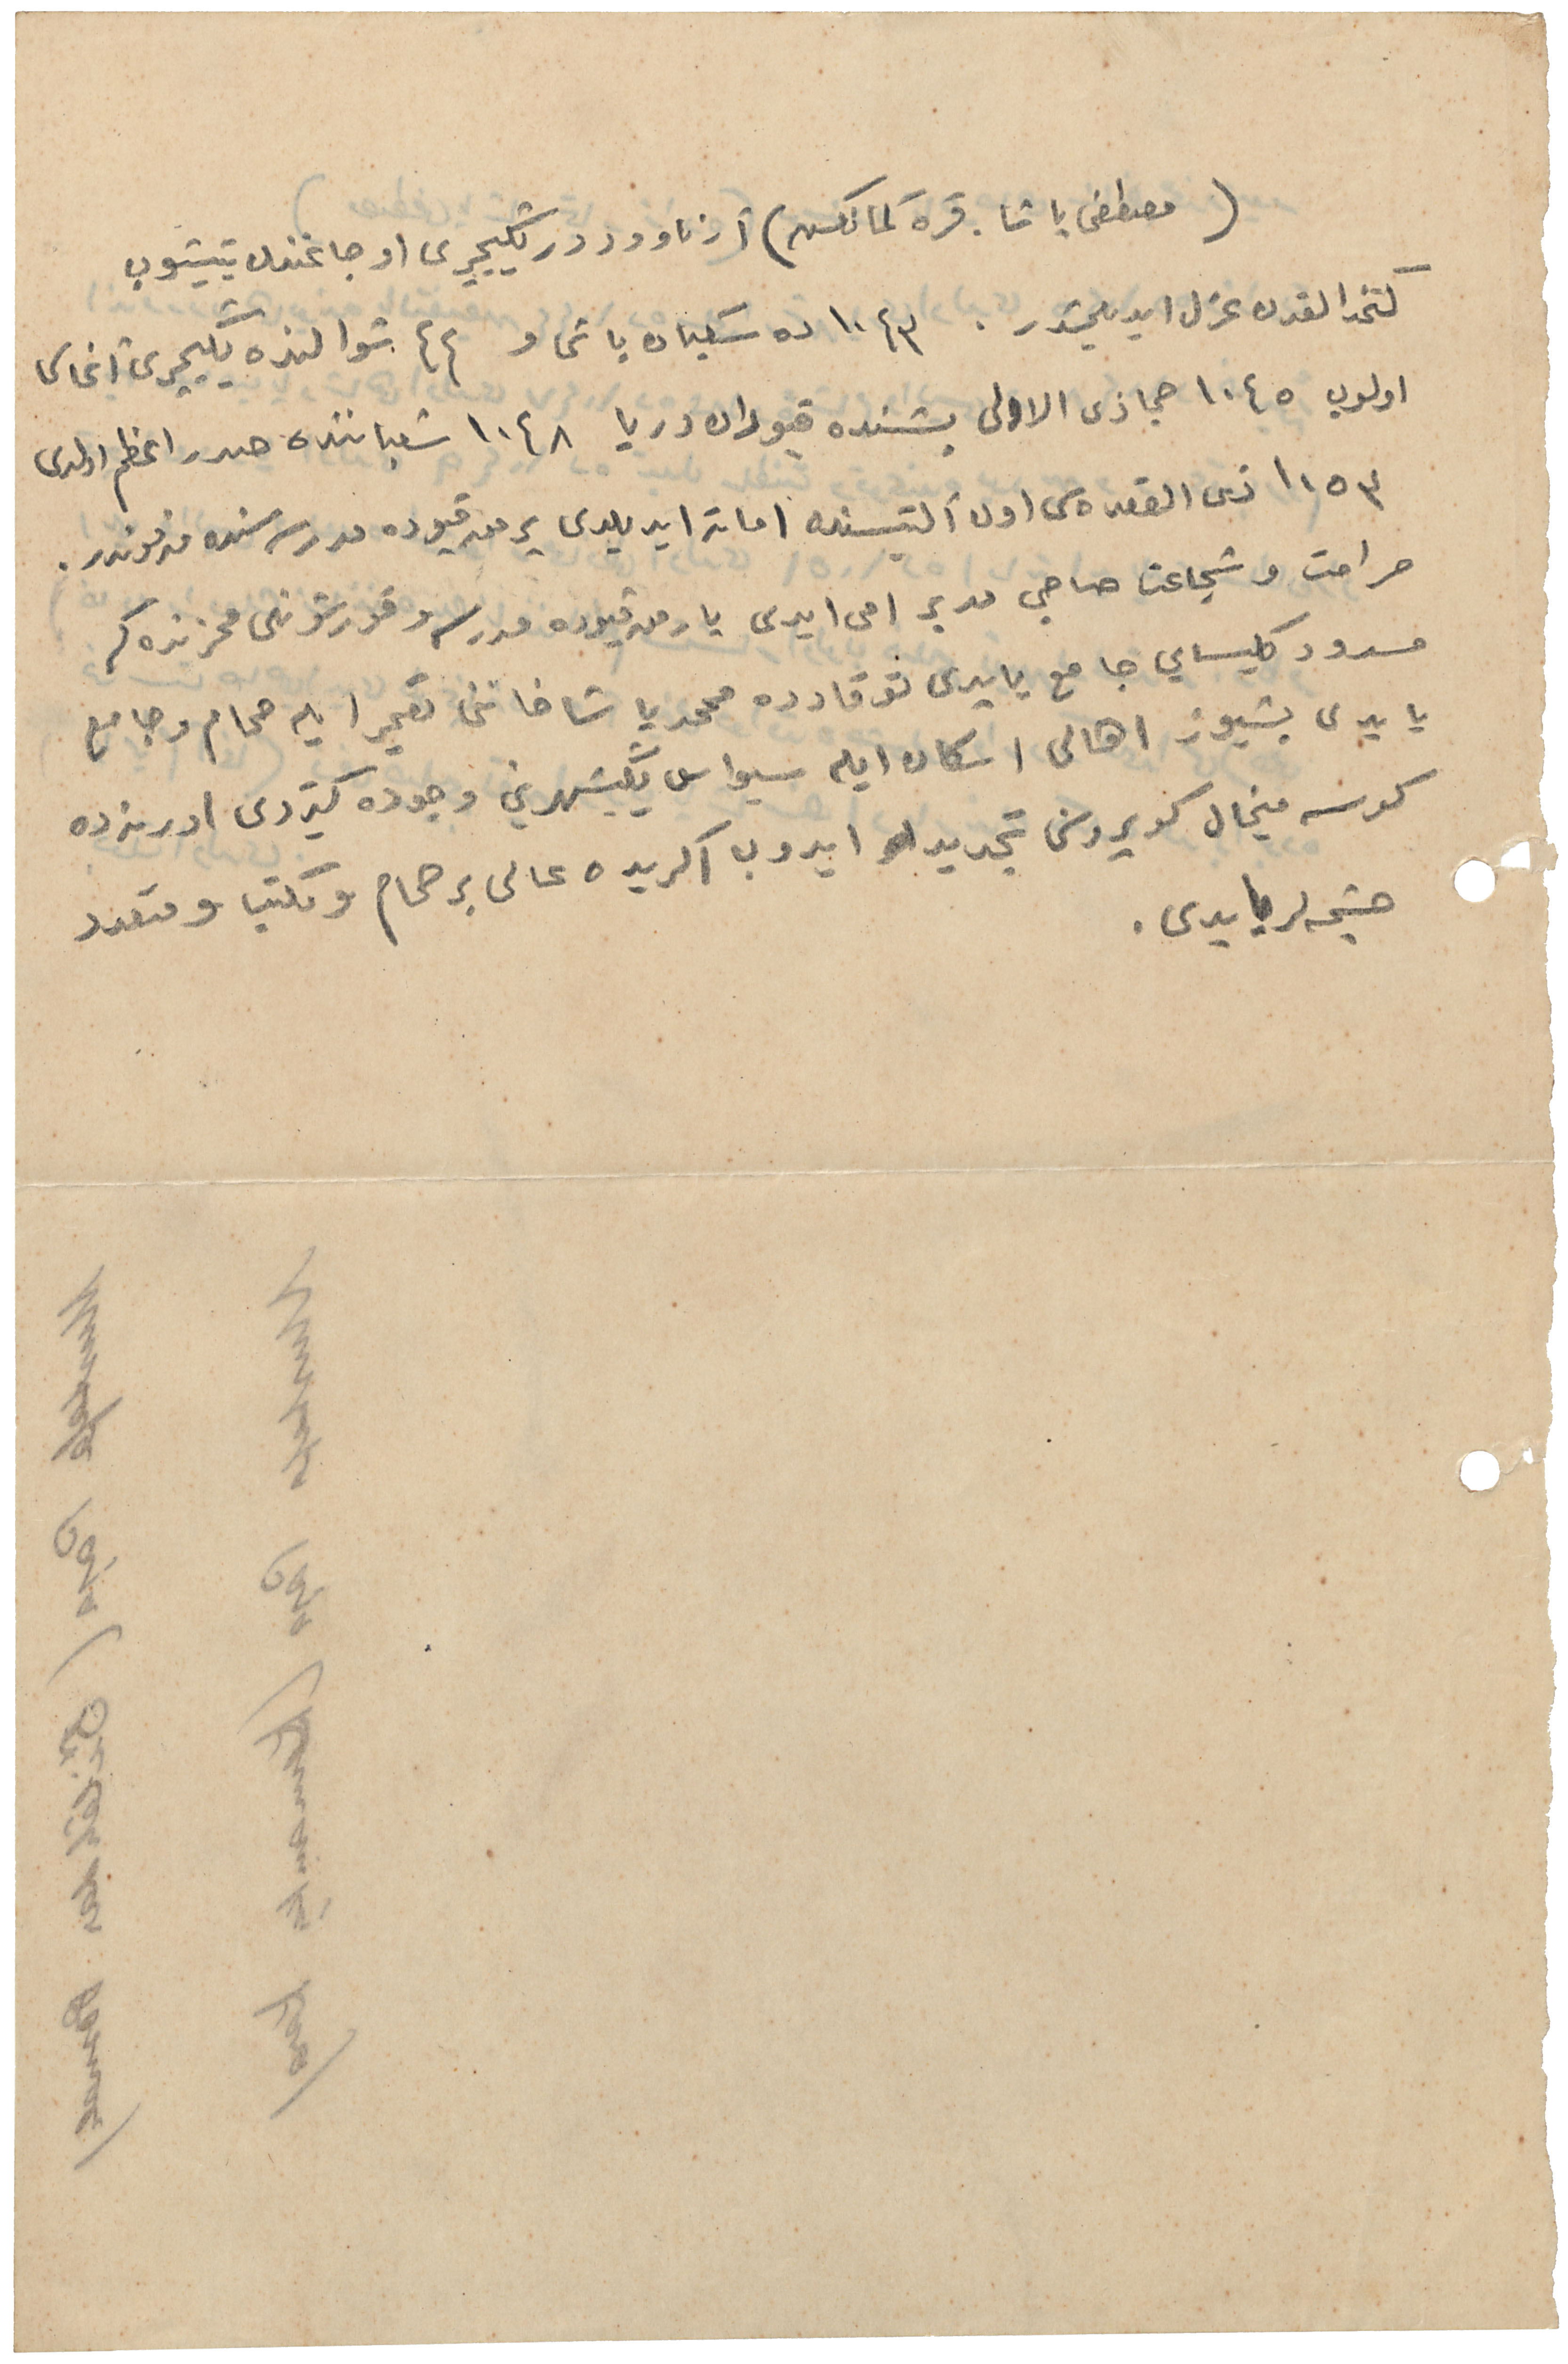 (مصطفى پاشا. قره كمانكش) آرناوود در يكيچرى اوجاغندن يتيشوب
كتخدالقدن عزل ايدلمشدر. ١٠٤٣ ده سكبان باشى و ٤٤ شوالنده يكيچرى آغاسى
اولوب ١٠٤٥ جماذى الاولى بشنده قپودان دريا ١٠٤٨ شعباننده صدر اعظم اولدى
١٠٥٣ ذى القعده سى اون آلتيسنده اماته ايديلدى پرمه قپوده مدرسه سنده مدفوندر.
صرامت و شجاعت صاحبى مدبر امى ايدى پارمه قپوده مدرسه و قورشونلى مخزنده كى
مسدود كليسايى جامع ياپدى توقادده محمد پاشا خاننى تعمير ايله حمام و جامع
ياپدى بشيوز اهالى اسكان ايله سيواس يكيشهرينى وجوده كتيردى ادرنه ده
كوسه ميخال كوپروسنى تجديد ايدوب آكريده عالى بر حمام و مكتب و متعدد
چشمه لر ياپدى.
Mustafa Paşa (
Mustafa Paşa (Kemankeş Kara